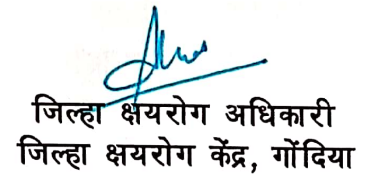 जिल्हा क्षयरोग अधिकारी
जिल्हा क्षयरोग केंद्र, गोंदिया